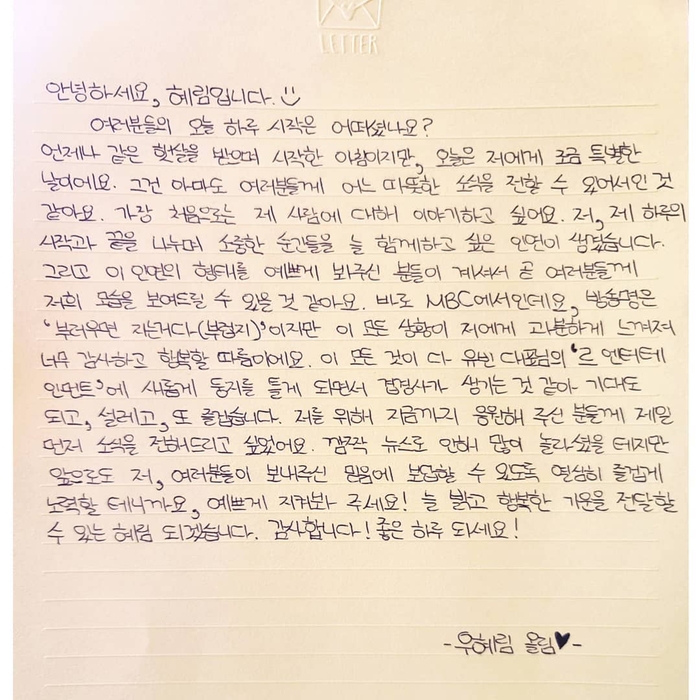 LETTER
안녕하세요, 혜림입니다.
여러분들의 오늘 하루 시작은 어떠셨나요?
언제나 같은 햇살을 받으며 시작한 아침이지만, 오늘은 저에게 조금 특별한
날이에요. 그건 아마도 여러분들께 어느 따뜻한 소식을 전할 수 있어서인 것
같아요. 가장 처음으로는 제 사람에 대해 이야기하고 싶어요. 저, 제 하루의
시작과 끝을 나누며 소중한 순간들을 늘 함께하고 싶은 인연이 생겼습니다.
그리고 이 인연의 형태를 예쁘게 봐주신 분들이 계셔서 곧 여러분들께
저희 모습을 보여드릴 수 있을 것 같아요. 바로 MBC에서인데요, 방송명은
'부러우면 지는거다(부럽지)'이지만 이 모든 상황이 저에게 과분하게 느껴져
너무 감사하고 행복할 따름이에요. 이 모든 것이 다 유빈 대표님의 '르 엔터테
인먼트'에 새롭게 둥지를 틀게 되면서 겹경사가 생기는 것 같아 기대도
되고, 설레고, 또 즐겁습니다. 저를 위해 지금까지 응원해 주신 분들께 제일
먼저 소식을 전해드리고 싶었어요. 깜짝 뉴스로 인해 많이 놀라셨을 테지만
앞으로도 저, 여러분들이 보내주신 믿음에 보답할 수 있도록 열심히 즐겁게
노력할 테니까요, 예쁘게 지켜봐 주세요! 늘 밝고 행복한 기운을 전달할
수 있는 혜림 되겠습니다. 감사합니다! 좋은 하루 되세요!
-우혜림 올림♥-